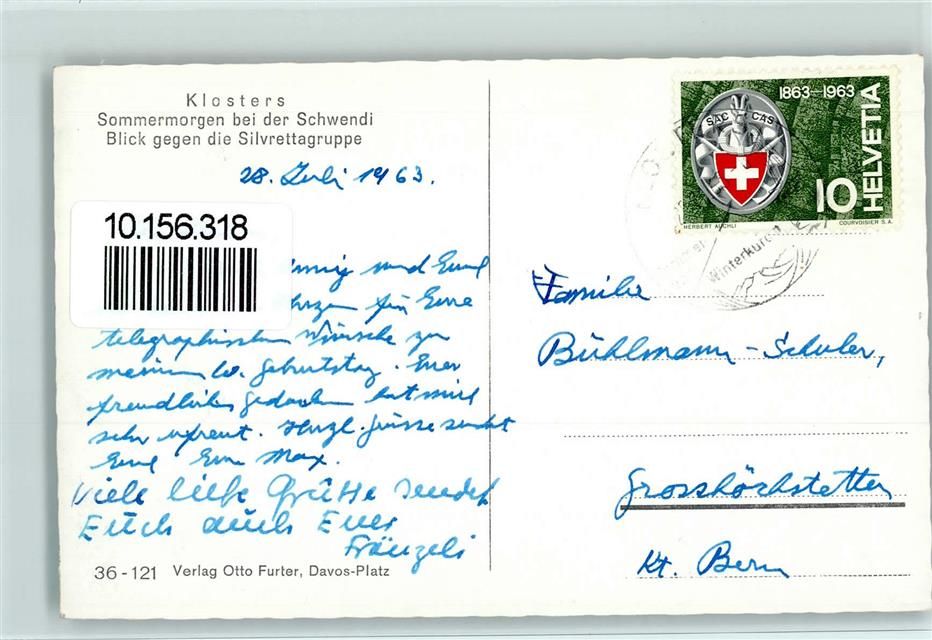 Klosters
Sommermorgen bei der Schwendi
Blick gegen die Silvrettagruppe
28. Juli 1963.
10.156.318
und Euch
für Eure
telegraphischen Wünsche zu
meinem Geburtstag. Euer
freundliches Gedenken hat mich
sehr erfreut. Herzl. Grüsse sendet
Euch Euer Max.
Viele liebe Grüsse sendet
Euch auch Euer
Fränzeli
36-121 Verlag Otto Furter, Davos-Platz
1863-1963
SAC CAS
HELVETIA
10
HERBERT AUCHLI COURVOISIER S.A.
Winterkurort
Familie
Bühlmann-Schuler,
Grosshöchstetten
Kt. Bern